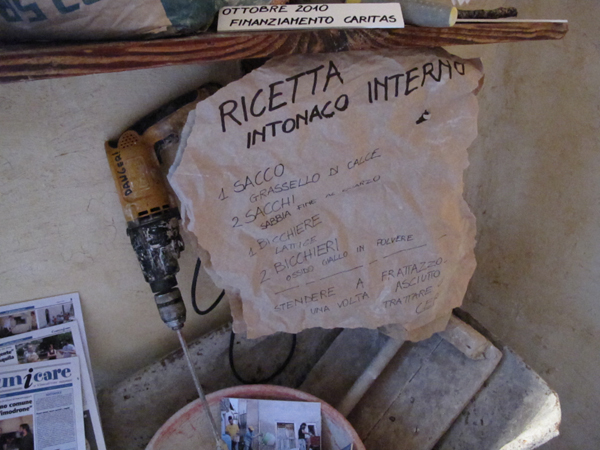 OTTOBRE 2010
FINANZIAMENTO CARITAS
RICETTA
INTONACO INTERNO
1 SACCO
GRASSELLO DI CALCE
2 SACCHI
SABBIA FINE
1 BICCHIERE
LATTICE
2 BICCHIERI
OSSIDO GIALLO IN POLVERE
STENDERE A FRATTAZZO.
UNA VOLTA ASCIUTO
TRATTARE
DANGERI
micare